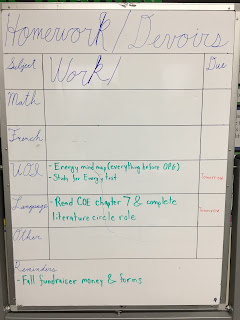 Homework / Devoirs
Subject Work / Due
Math
French
UOI - Energy mind map (everything before OPG)
- Study for Energy test Tomorrow
Language - Read COE chapter 7 & complete
literature circle role Tomorrow
Other
Reminders
- Fall fundraiser money & forms